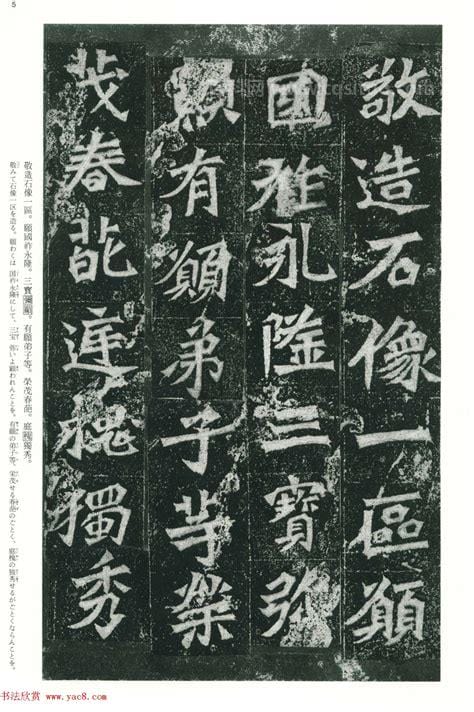 5
敬造石像一區願
國祚永隆三寶弥
顯有願弟子等榮
茂春葩庭槐獨秀
敬造石像一區。願國祚永隆。三寶彌顯。有願弟子等。榮茂春葩。庭槐獨秀。
敬みて石像一区を造る。願わくは国祚永隆にして、三宝弥いよ顕われんことを。有願の弟子等、栄茂せる春葩のごとく、庭槐の独秀せるがごとくならんことを。
书法欣赏 www.yac8.com